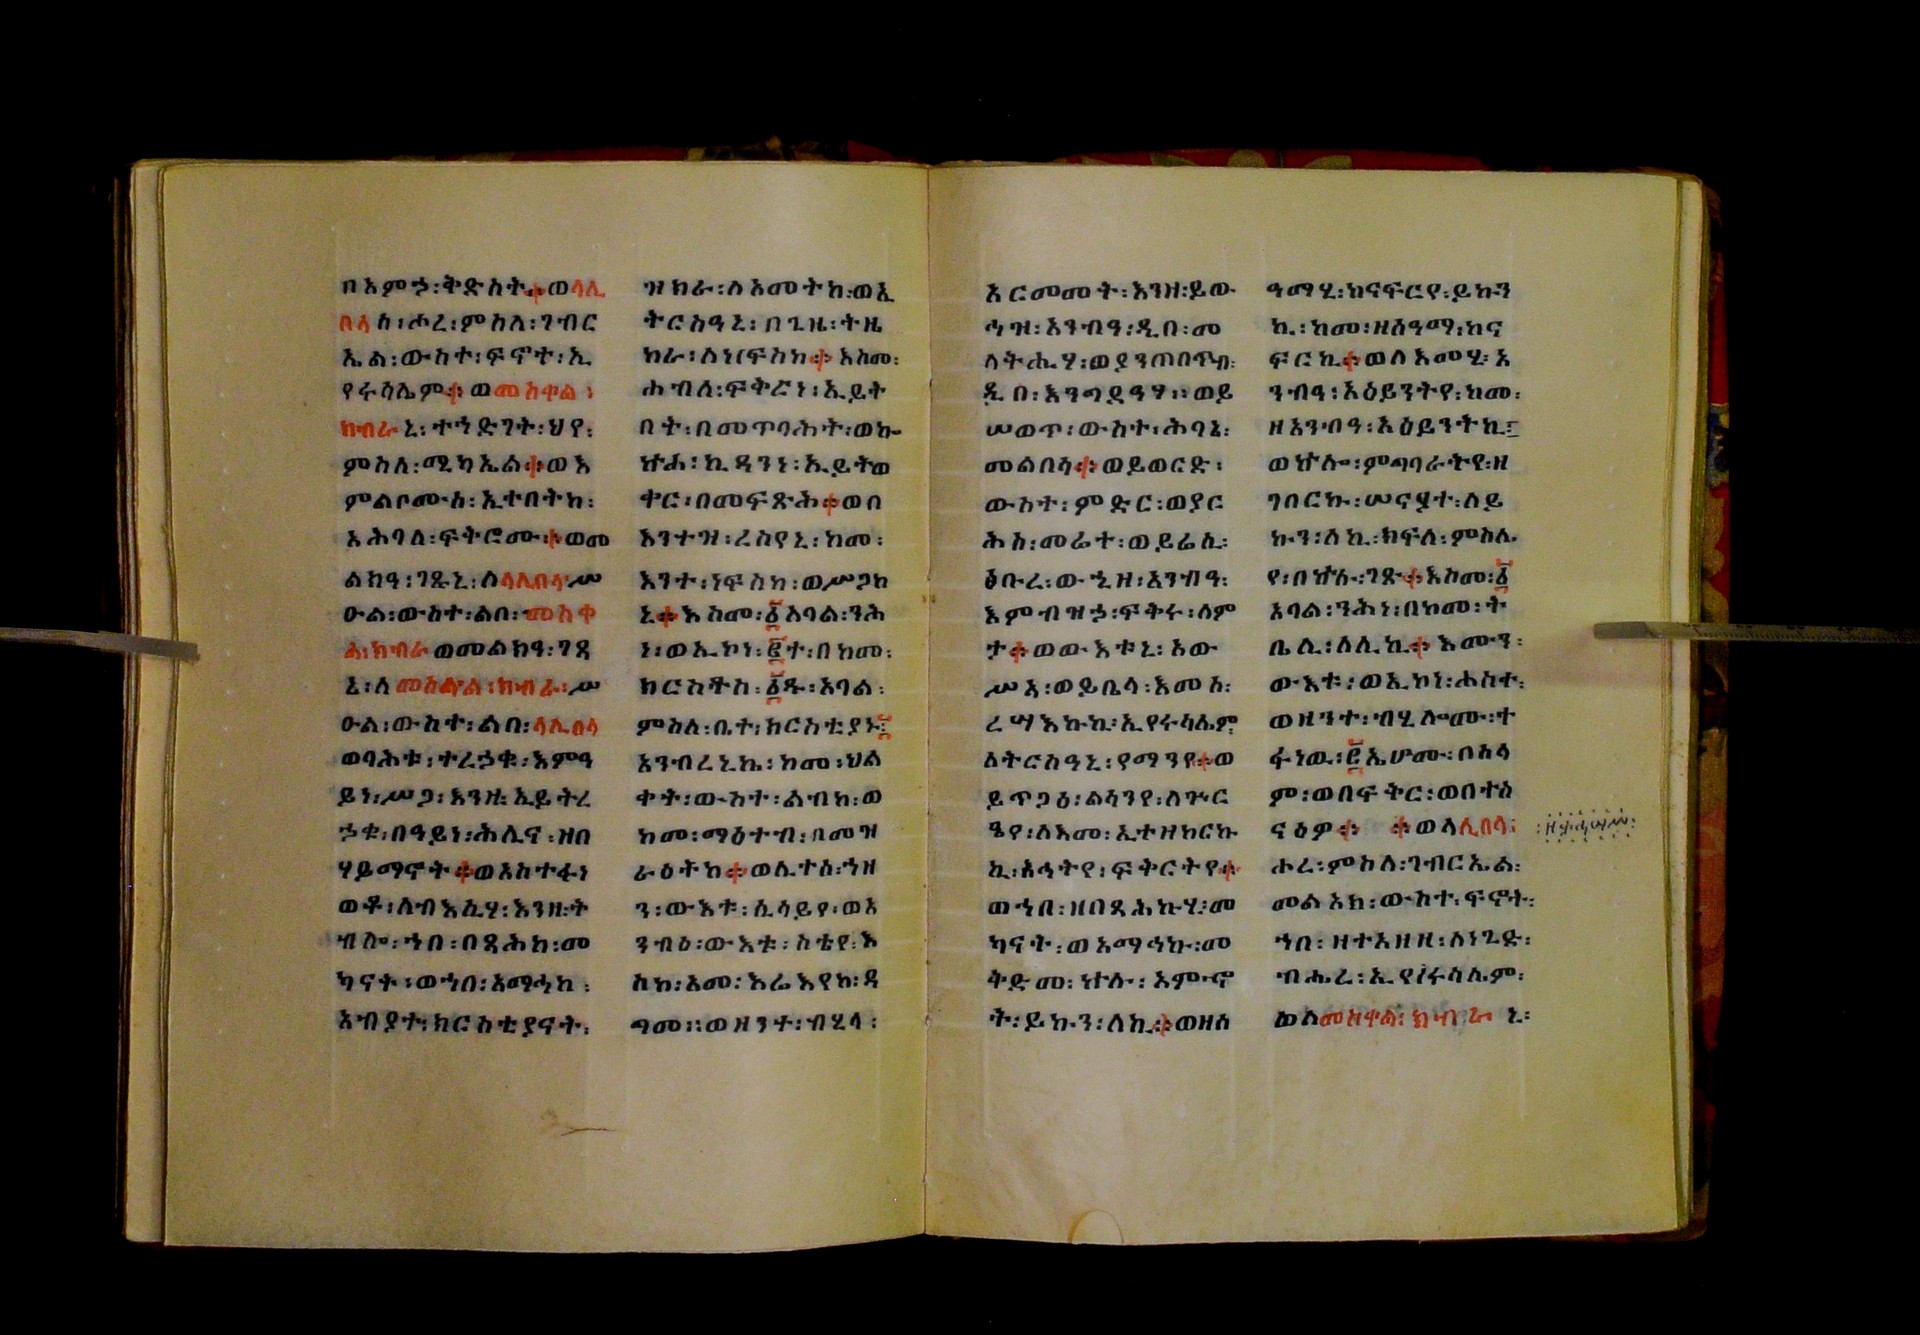 በአምኃ፡ቅድስት፨ወላሊ
በላስ፡ሖረ፡ምስለ፡ገብር
ኤል፡ውስተ፡ፍኖተ፡ኢ
የሩሳሌም፨ወመስቀል፡
ክብራኒ፡ተኀድገት፡ህየ፡
ምስለ፡ሚካኤል፨ወእ
ምልቦሙሰ፡ኢተበትከ፡
አሕባለ፡ፍትሮሙ፨ወመ
ልክዓ፡ገጹኒ፡ለላሊበላ፡ሥ
ዑል፡ውስተ፡ልበ፡መስቀ
ል፡ክብራ፡ወመልክዓ፡ገጻ
ኒ፡ለመስቀል፡ክብራ፡ሥ
ዑል፡ውስተ፡ልበ፡ላሊበላ
ወባሕቱ፡ተረኃቁ፡እምዓ
ይነ፡ሥጋ፡እንዘ፡ኢይትረ
ኃቁ፡በዓይነ፡ሕሊና፡ዘበ
ሃይማኖት፨ወአስተፋነ
ወቶ፡ለብእሲሃ፡እንዘ፡ት
ብሎ፡ኀበ፡በጻሕከ፡መ
ካናት፡ወኀበ፡አማሓከ፡
አብያተ፡ክርስቲያናት፡
ዝክራ፡ለአመትከ፡ወኢ
ትርስዓኒ፡በጊዜ፡ትዜ
ከራ፡ለነፍስከ፨እስመ፡
ሐብለ፡ፍቅሮነ፡ኢይት
በት፡በመጥባሕት፡ወኩ
ኵሐ፡ኪዳንነ፡ኢይትወ
ቀር፡በመፍጽሕ፨ወበ
እንተዝ፡ረስየኒ፡ከመ፡
እንተ፡ነፍስከ፡ወሥጋከ
ኒ፨እስመ፡፩አባል፡ንሕ
ነ፡ወኢኮነ፡፪ተ፡በከመ፡
ክርስቶስ፡፩ዱ፡አባል፡
ምስለ፡ቤተ፡ክርስቲያኑ፤
አንብረኒኬ፡ከመ፡ህል
ቀት፡ውስተ፡ልብከ፡ወ
ከመ፡ማዕተብ፡በመዝ
ራዕትከ፨ወሊተሰ፡ኀዘ
ን፡ውእቱ፡ሲሳይየ፡ወአ
ንብዕ፡ውእቱ፡ስቴየ፡እ
ስከ፡አመ፡እሬእየከ፡ዳ
ግመ፡፡ወዘንተ፡ብሂላ፡
አርመመት፡እንዘ፡ይው
ሕዝ፡አንብዓ፡ዲበ፡መ
ላትሒሃ፡ወያንጠበጥብ፡
ዲበ፡እንግድዓሃ፡፡ወይ
ሠወጥ፡ውስተ፡ሕባኔ፡
መልበሳ፨ወይወርድ፡
ውስተ፡ምድር፡ወያር
ሕስ፡መሬተ፡ወይሬሲ፡
ፅቡረ፡ውኂዘ፡አንብዓ፡
እምብዝኃ፡ፍቅሩ፡ለም
ታ፨ወውእቱኒ፡አው
ሥአ፡ወይቤላ፡እመሰ፡
ረሣእኩኪ፡ኢየሩሳሌም፡
ለትርስዓኒ፡የማንየ፨ወ
ይጥጋዕ፡ልሳንየ፡ለጕር
ዔየ፡ለእመ፡ኢተዘከርኩ
ኪ፡እኅትየ፡ፍቅርትየ፨
ወኀበ፡ዘበጻሕኩሂ፡መ
ካናት፡ወአማኅኩ፡መ
ቅድመ፡ኵሉ፡አምኖ
ት፡ይኩን፡ለኪ፨ወዘሰ
ዓማሂ፡ከናፍርየ፡ይኩን
ኪ፡ከመ፡ዘሰዓማ፡ከና
ፍርኪ፨ወለእመሂ፡አ
ንብዓ፡አዕይንትየ፡ከመ፡
ዘአንብዓ፡አዕይንትኪ፤
ወኵሎ፡ምግባራትየ፡ዘ
ገበርኩ፡ሠናያተ፡ለይ
ኩን፡ለኪ፡ክፍለ፡ምስሌ
የ፡በኵሉ፡ገጽ፨እስመ፡፩
አባል፡ንሕነ፡በከመ፡ት
ቤሊ፡ለሊኪ፨እሙን፡
ውእቱ፡ወኢኮነ፡ሐሰተ፡
ወዘንተ፡ብሂሎሙ፡ተ
ፋነዉ፡፪ኤሆሙ፡በሰላ
ም፡ወበፍቅር፡ወበተስ
ናዕዎ፨ ፨ወላሊበላ፡
ሐረ፡ምስለ፡ገብርኤል፡
መልአክ፡ውስተ፡ፍኖት፡
ኀበ፡ዘተአዘዘ፡ለነጊድ፡
ብሔረ፡ኢየሩሳሌም፡
ወለመስቀል፡ክብራኒ፡